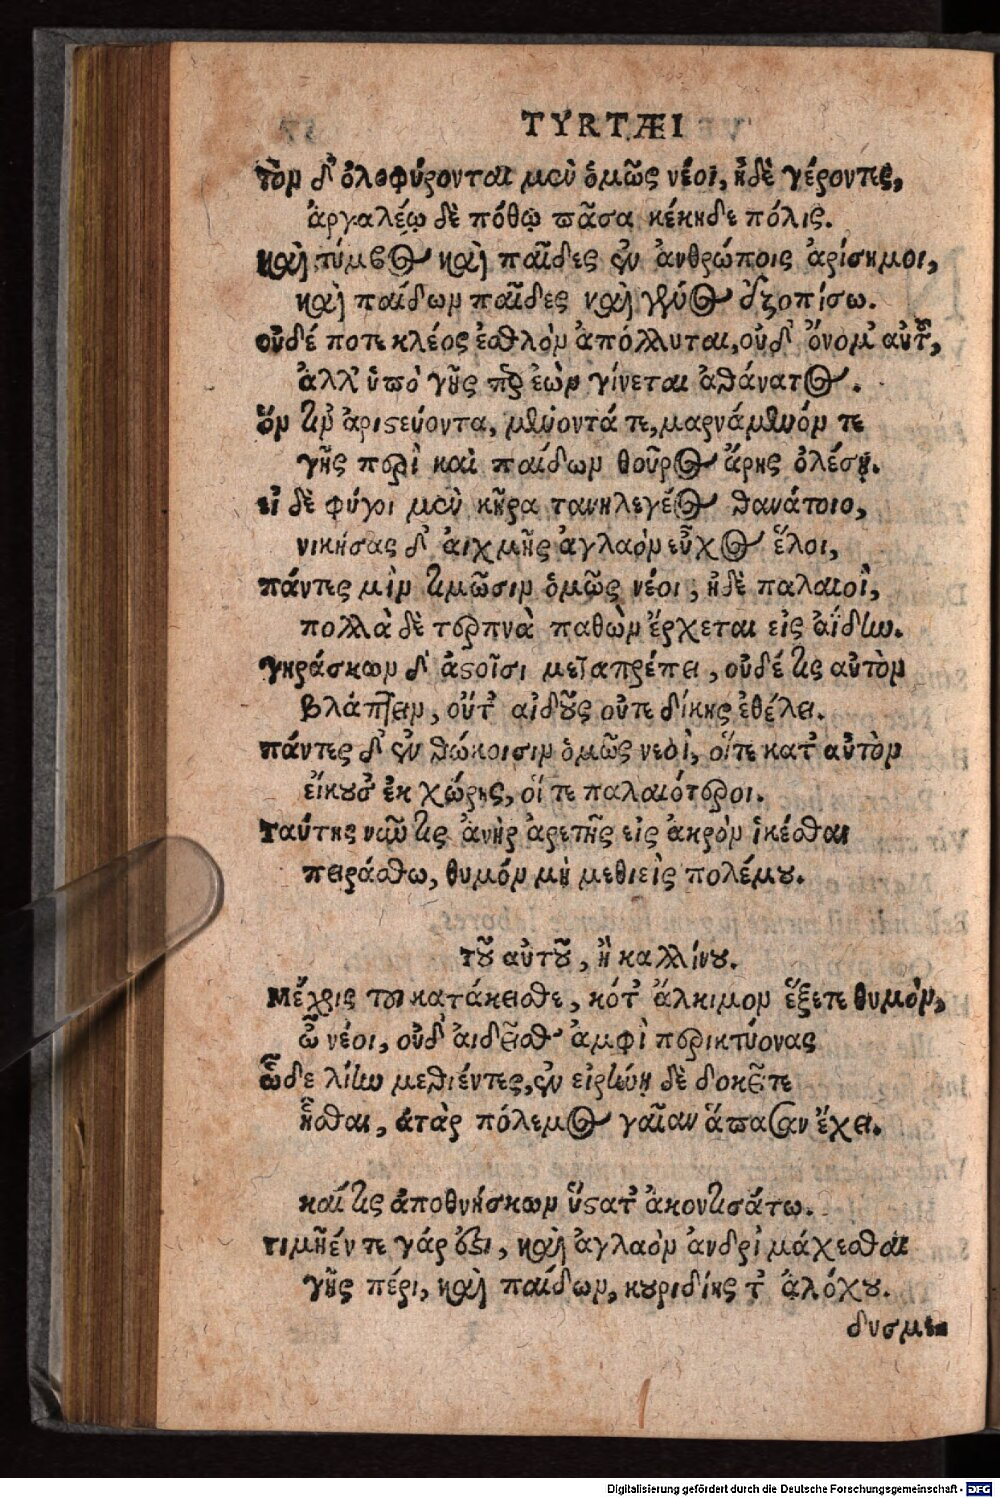 TYRTÆI
τὸν δ' ὀλοφύρονται μὲν ὁμῶς νέοι, ἠδὲ γέροντες,
ἀργαλέῳ δὲ πόθῳ πᾶσα κέκηδε πόλις.
καὶ τύμβος καὶ παῖδες ἐν ἀνθρώποις ἀρίσημοι,
καὶ παίδων παῖδες καὶ γένος ἐξοπίσω.
οὐδέ ποτε κλέος ἐσθλὸν ἀπόλλυται, οὐδ' ὄνομ' αὐτοῦ,
ἀλλ' ὑπὸ γῆς περ ἐὼν γίνεται ἀθάνατος.
ὅν τιν' ἀριστεύοντα, μένοντά τε, μαρνάμενόν τε
γῆς περὶ καὶ παίδων θοῦρος ἄρης ὀλέσῃ.
εἰ δὲ φύγοι μὲν κῆρα τανηλεγέος θανάτοιο,
νικήσας δ' αἰχμῆς ἀγλαὸν εὖχος ἕλοι,
πάντες μὶν τιμῶσιν ὁμῶς νέοι, ἠδὲ παλαιοὶ,
πολλὰ δὲ τερπνὰ παθὼν ἔρχεται εἰς ἀΐδην.
γηράσκων δ' ἀστοῖσι μεταπρέπει, οὐδέ τις αὐτὸν
βλάπτειν, οὔτ' αἰδοῦς οὔτε δίκης ἐθέλει.
πάντες δ' ἐν θώκοισιν ὁμῶς νεοὶ, οἵτε κατ' αὐτὸν
εἴκουσ' ἐκ χώρης, οἵ τε παλαιότεροι.
ταύτης νῦν τις ἀνὴρ ἀρετῆς εἰς ἀκρὸν ἱκέσθαι
πειράσθω, θυμόν μὴ μεθιεὶς πολέμου.
τοῦ αὐτοῦ, ἢ καλλίνου.
Μέχρις τοῦ κατάκεισθε, κότ' ἄλκιμον ἕξετε θυμὸν,
ὦ νέοι, οὐδ' αἰδεῖσθ' ἀμφὶ περικτύονας
ὧδε λίην μεθιέντες, ἐν εἰρήνῃ δὲ δοκεῖτε
ἧσθαι, ἀτὰρ πόλεμος γαῖαν ἅπασαν ἔχει.
καί τις ἀποθνήσκων ὕστατ' ἀκοντισάτω.
τιμῆέν τε γάρ ἐστι, καὶ ἀγλαὸν ἀνδρὶ μάχεσθαι
γῆς πέρι, καὶ παίδων, κυριδίης τ' ἀλόχου.
δυσμε-
Digitalisierung gefördert durch die Deutsche Forschungsgemeinschaft - DFG